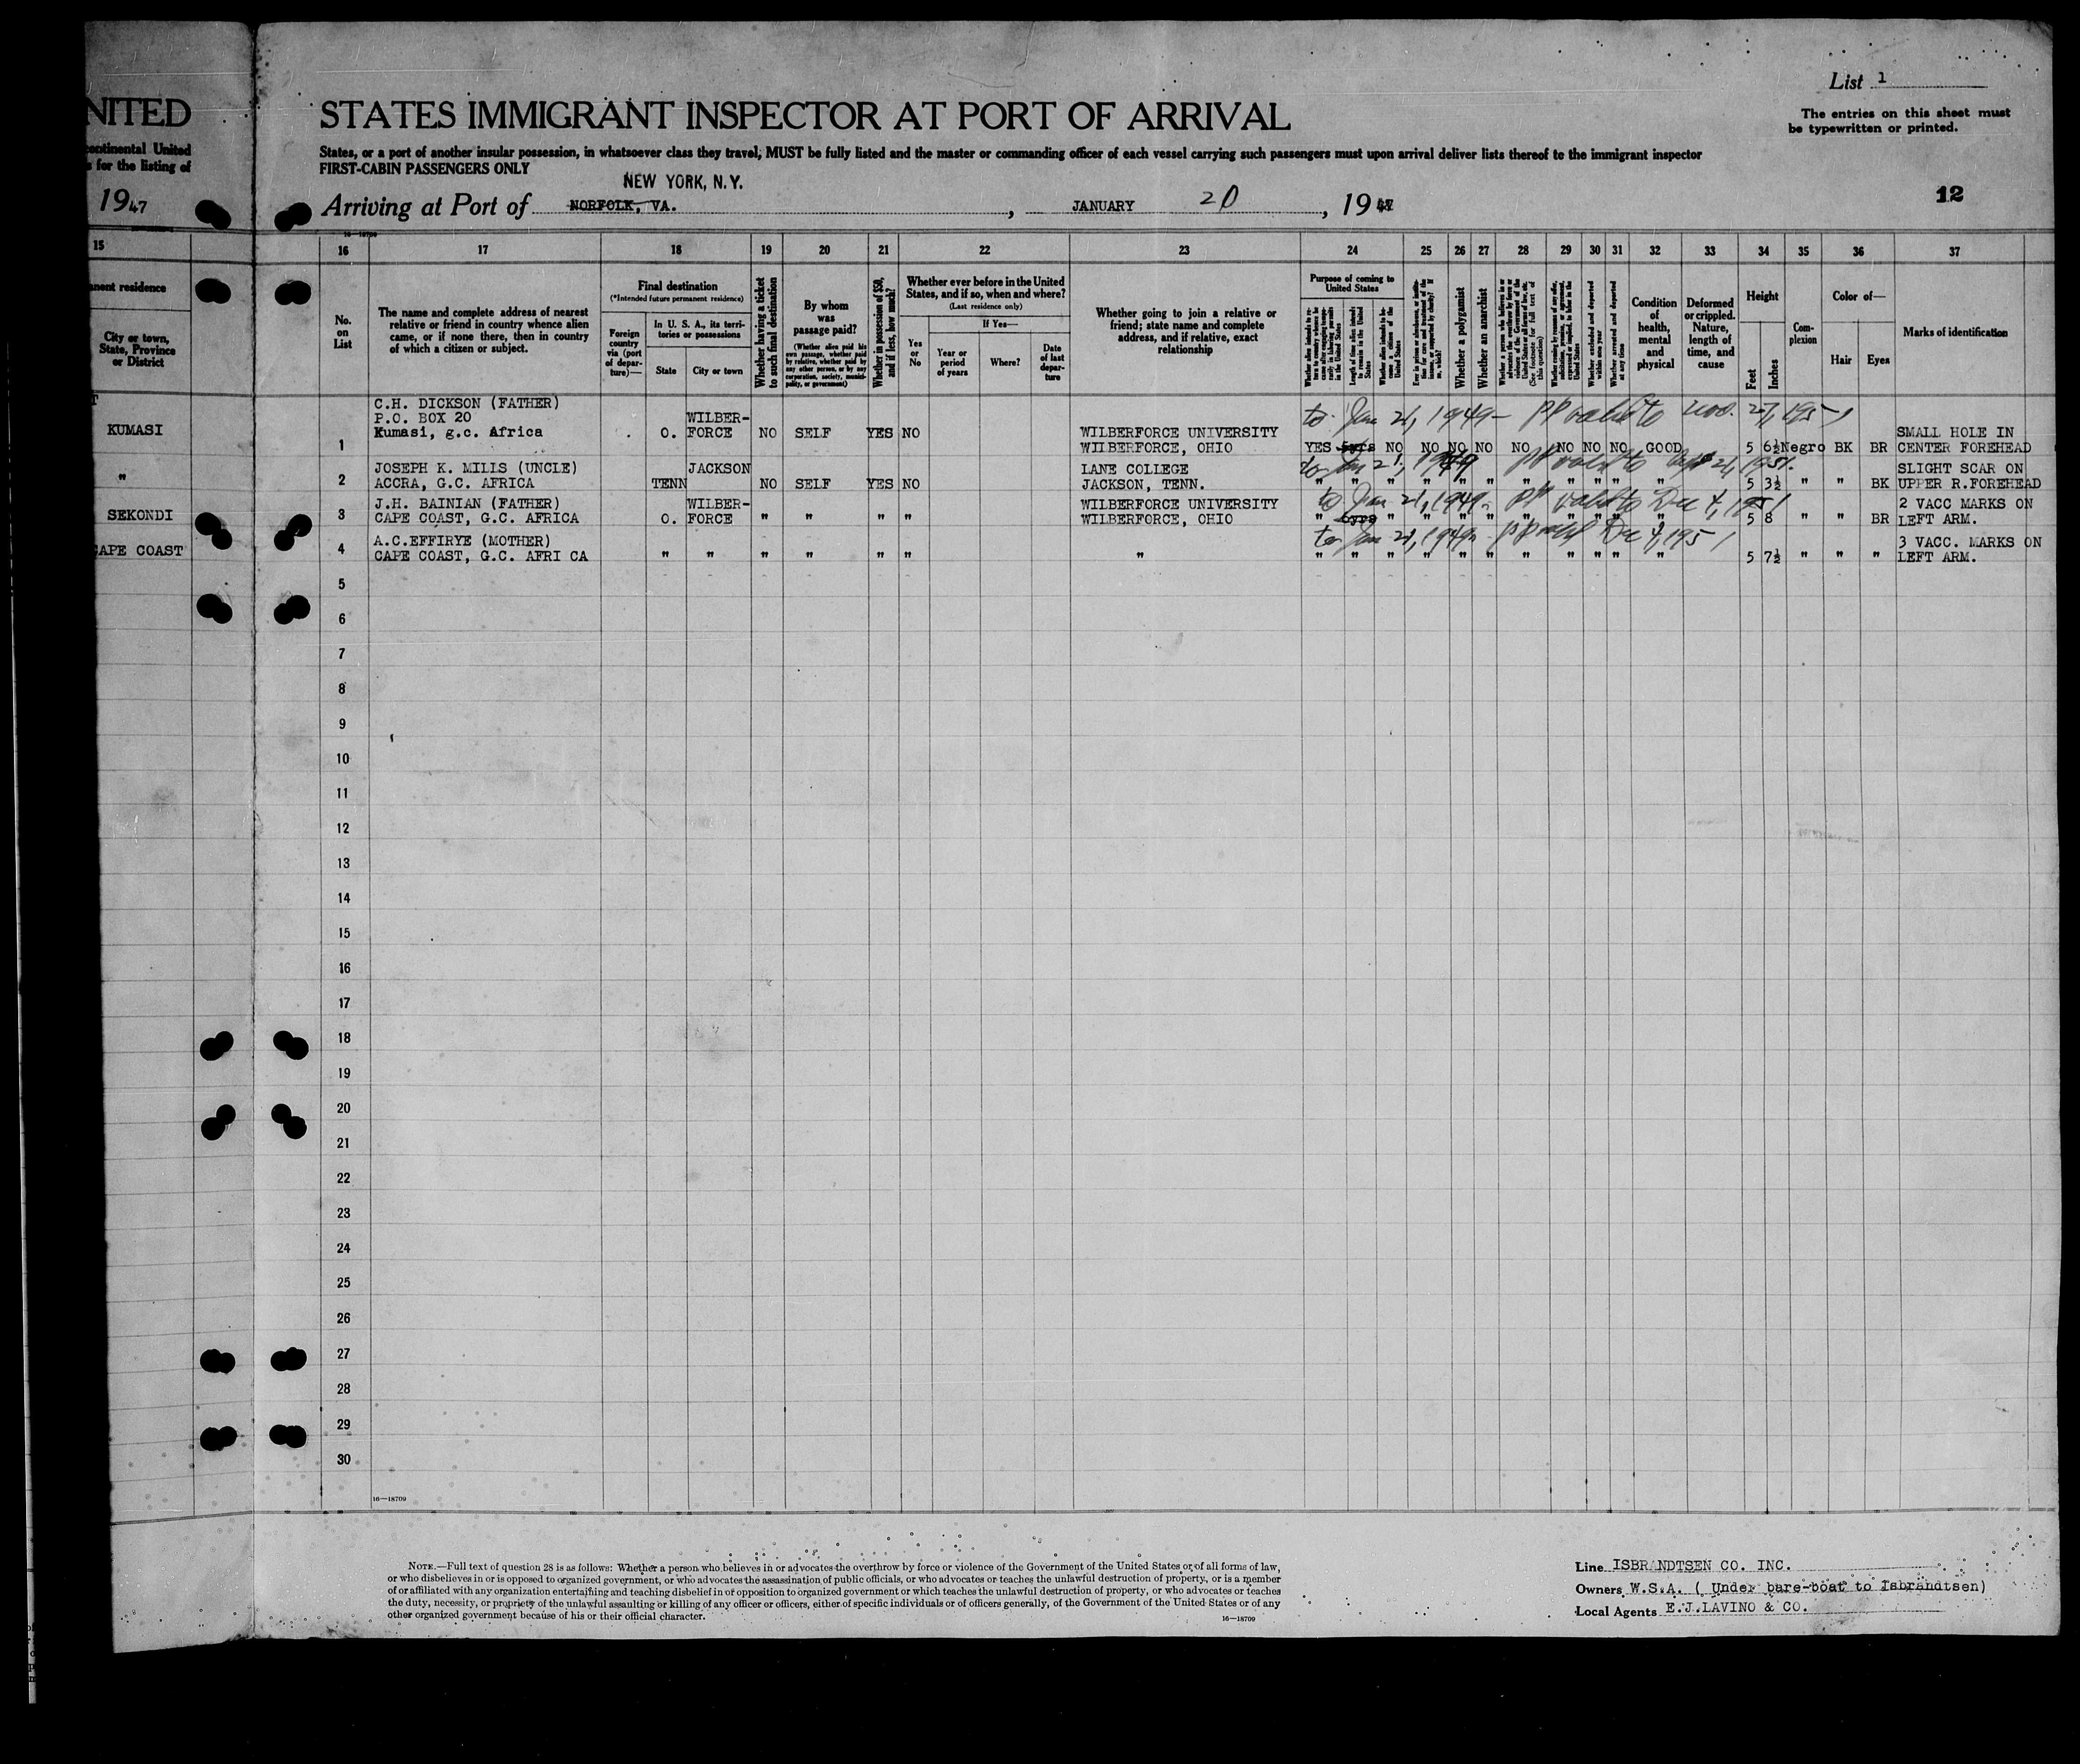 List 1
NITED
STATES IMMIGRANT INSPECTOR AT PORT OF ARRIVAL
The entries on this sheet must
be typewritten or printed.
continental United
s for the listing of
States, or a port of another insular possession, in whatsoever class they travel, MUST be fully listed and the master or commanding officer of each vessel carrying such passengers must upon arrival deliver lists thereof to the immigrant inspector
FIRST-CABIN PASSENGERS ONLY
NEW YORK, N.Y.
1947
Arriving at Port of NORFOLK, VA., JANUARY 20, 19
12
16—18709
15 16 17 18 19 20 21 22 23 24 25 26 27 28 29 30 31 32 33 34 35 36 37
nent residence
City or town,
State, Province
or District
No.
on
List
The name and complete address of nearest
relative or friend in country whence alien
came, or if none there, then in country
of which a citizen or subject.
Final destination
(*Intended future permanent residence)
Foreign
country
via (port
of depar-
ture)—
In U. S. A., its terri-
tories or possessions
State
City or town
Whether having a ticket
to such final destination
By whom
was
passage paid?
(Whether alien paid his
own passage, whether paid
by relative, whether paid by
any other person, or by any
corporation, society, munici-
pality, or government)
Whether in possession of $50,
and if less, how much?
Whether ever before in the United
States, and if so, when and where?
(Last residence only)
Yes
or
No
If Yes—
Year or
period
of years
Where?
Date
of last
depar-
ture
Whether going to join a relative or
friend; state name and complete
address, and if relative, exact
relationship
Purpose of coming to
United States
Length of time alien intends
to remain in the United
States
Whether alien intends to be-
come a citizen of the
United States
Whether a polygamist
Whether an anarchist
(See footnote for full text of
this question)
Whether excluded and deported
within one year
Whether arrested and deported
at any time
Condition
of
health,
mental
and
physical
Deformed
or crippled.
Nature,
length of
time, and
cause
Height
Feet
Inches
Com-
plexion
Color of—
Hair
Eyes
Marks of identification
C.H. DICKSON (FATHER)
P.O. BOX 20 WILBER- to Jan 21, 1949 - PP valid to Nov. 27, 1951
KUMASI Kumasi, g.c. Africa O. FORCE NO SELF YES NO WILBERFORCE UNIVERSITY SMALL HOLE IN
1 WILBERFORCE, OHIO YES 5yrs NO NO NO NO NO NO NO NO GOOD 5 6½ Negro BK BR CENTER FOREHEAD
JOSEPH K. MILLS (UNCLE) JACKSON LANE COLLEGE to Jan 21, 1949 pp valid to 1951. SLIGHT SCAR ON
" 2 ACCRA, G.C. AFRICA TENN NO SELF YES NO JACKSON, TENN. " " " " " " " " " " " 5 3½ " " BK UPPER R.FOREHEAD
J.H. BAINIAN (FATHER) WILBER- WILBERFORCE UNIVERSITY to Jan 21, 1949 - PP valid to Dec 4, 1951 2 VACC MARKS ON
SEKONDI 3 CAPE COAST, G.C. AFRICA O. FORCE " " " " WILBERFORCE, OHIO " 6yrs " " " " " " " " " 5 8 " " BR LEFT ARM.
A.C.EFFIRYE (MOTHER) to Jan 21, 1949 - pp valid Dec 4, 1951 3 VACC. MARKS ON
CAPE COAST 4 CAPE COAST, G.C. AFRI CA " " " " " " " " " " " " " " " " " " 5 7½ " " " LEFT ARM.
5
6
7
8
9
10
11
12
13
14
15
16
17
18
19
20
21
22
23
24
25
26
27
28
29
30
16—18709
NOTE.—Full text of question 28 is as follows: Whether a person who believes in or advocates the overthrow by force or violence of the Government of the United States or of all forms of law,
or who disbelieves in or is opposed to organized government, or who advocates the assassination of public officials, or who advocates or teaches the unlawful destruction of property, or is a member
of or affiliated with any organization entertaining and teaching disbelief in or opposition to organized government or which teaches the unlawful destruction of property, or who advocates or teaches
the duty, necessity, or propriety of the unlawful assaulting or killing of any officer or officers, either of specific individuals or of officers generally, of the Government of the United States or of any
other organized government because of his or their official character.
16—18709
Line ISBRANDTSEN CO. INC.
Owners W.S.A. ( Under bare-boat to Isbrandtsen)
Local Agents E.J.LAVINO & CO.